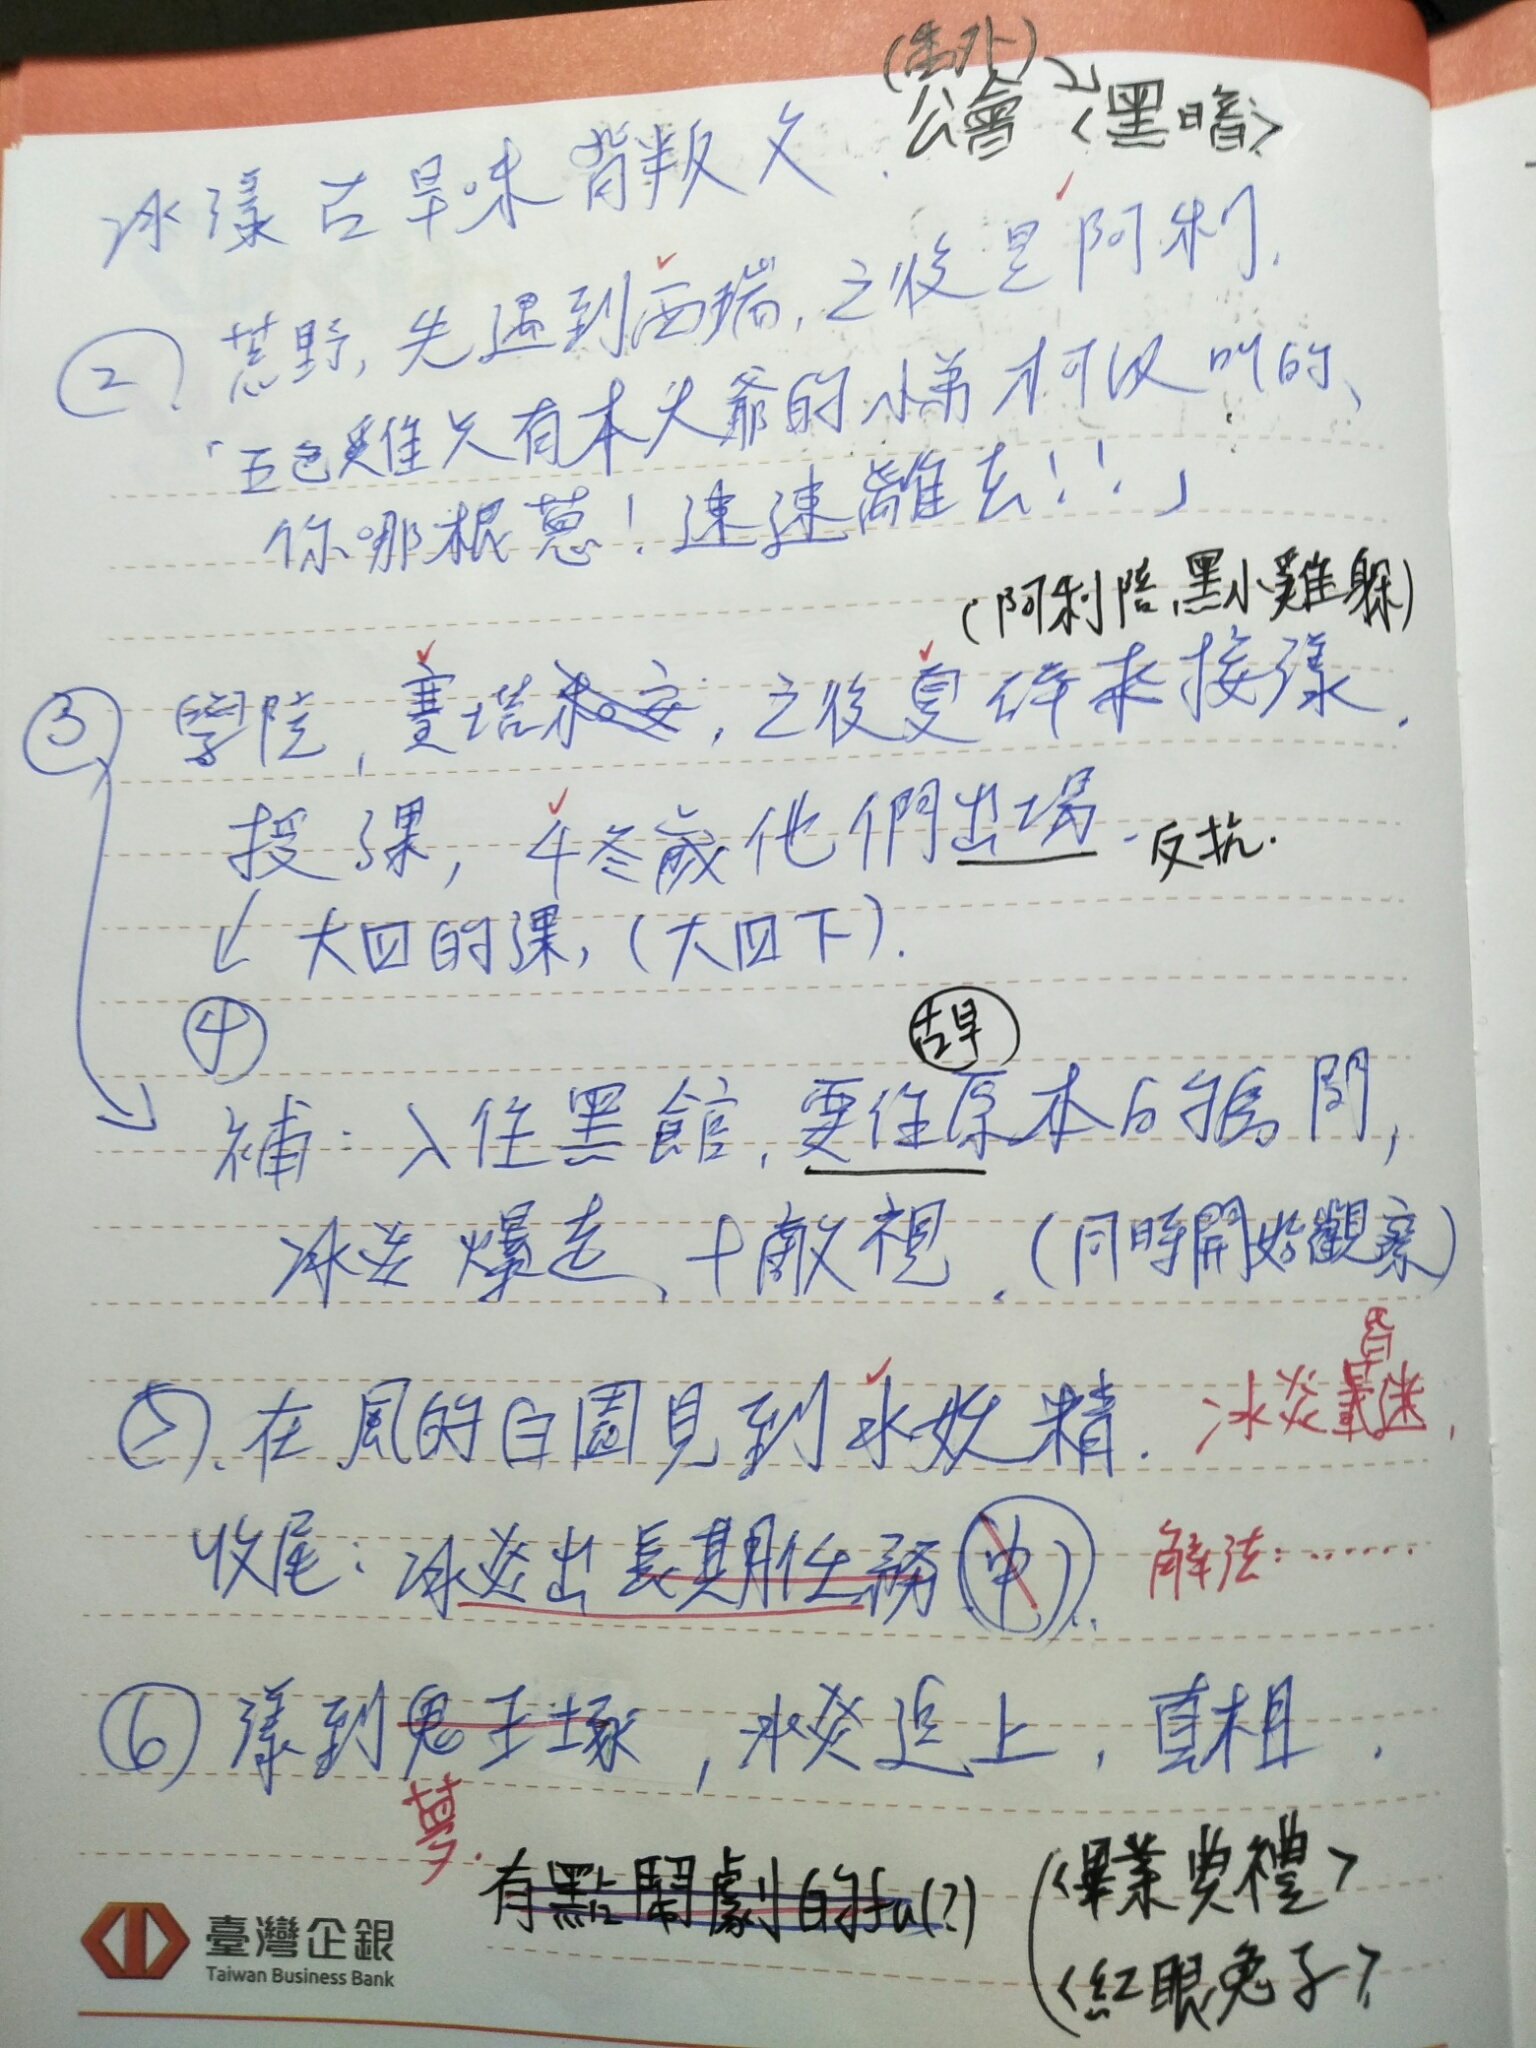 (番外)
公會〈黑暗〉
冰漾古早味背叛文.
② 荒野,先遇到西瑞,之後是阿利.
「五色雞只有本大爺的小弟才可以叫的、
你哪根蔥!速速離去!!」
(阿利陪黑小雞躲)
③ 學院,賽塔來安,之後夏碎來接漾.
授課,千冬歲他們出場.反抗.
大四的課,(大四下).
④
古早
補:入住黑館,要住原本的房間,
冰炎爆走、十敵視.(同時開始觀察)
⑤.在風的白園見到水妖精.冰炎暈迷,
收尾:冰炎出長期任務(中)..解法:……
⑥ 漾到鬼王塚,冰炎追上,真相.
夢.
有點鬧劇的fu(?)
〈畢業典禮〉
〈紅眼兔子〉
臺灣企銀
Taiwan Business Bank